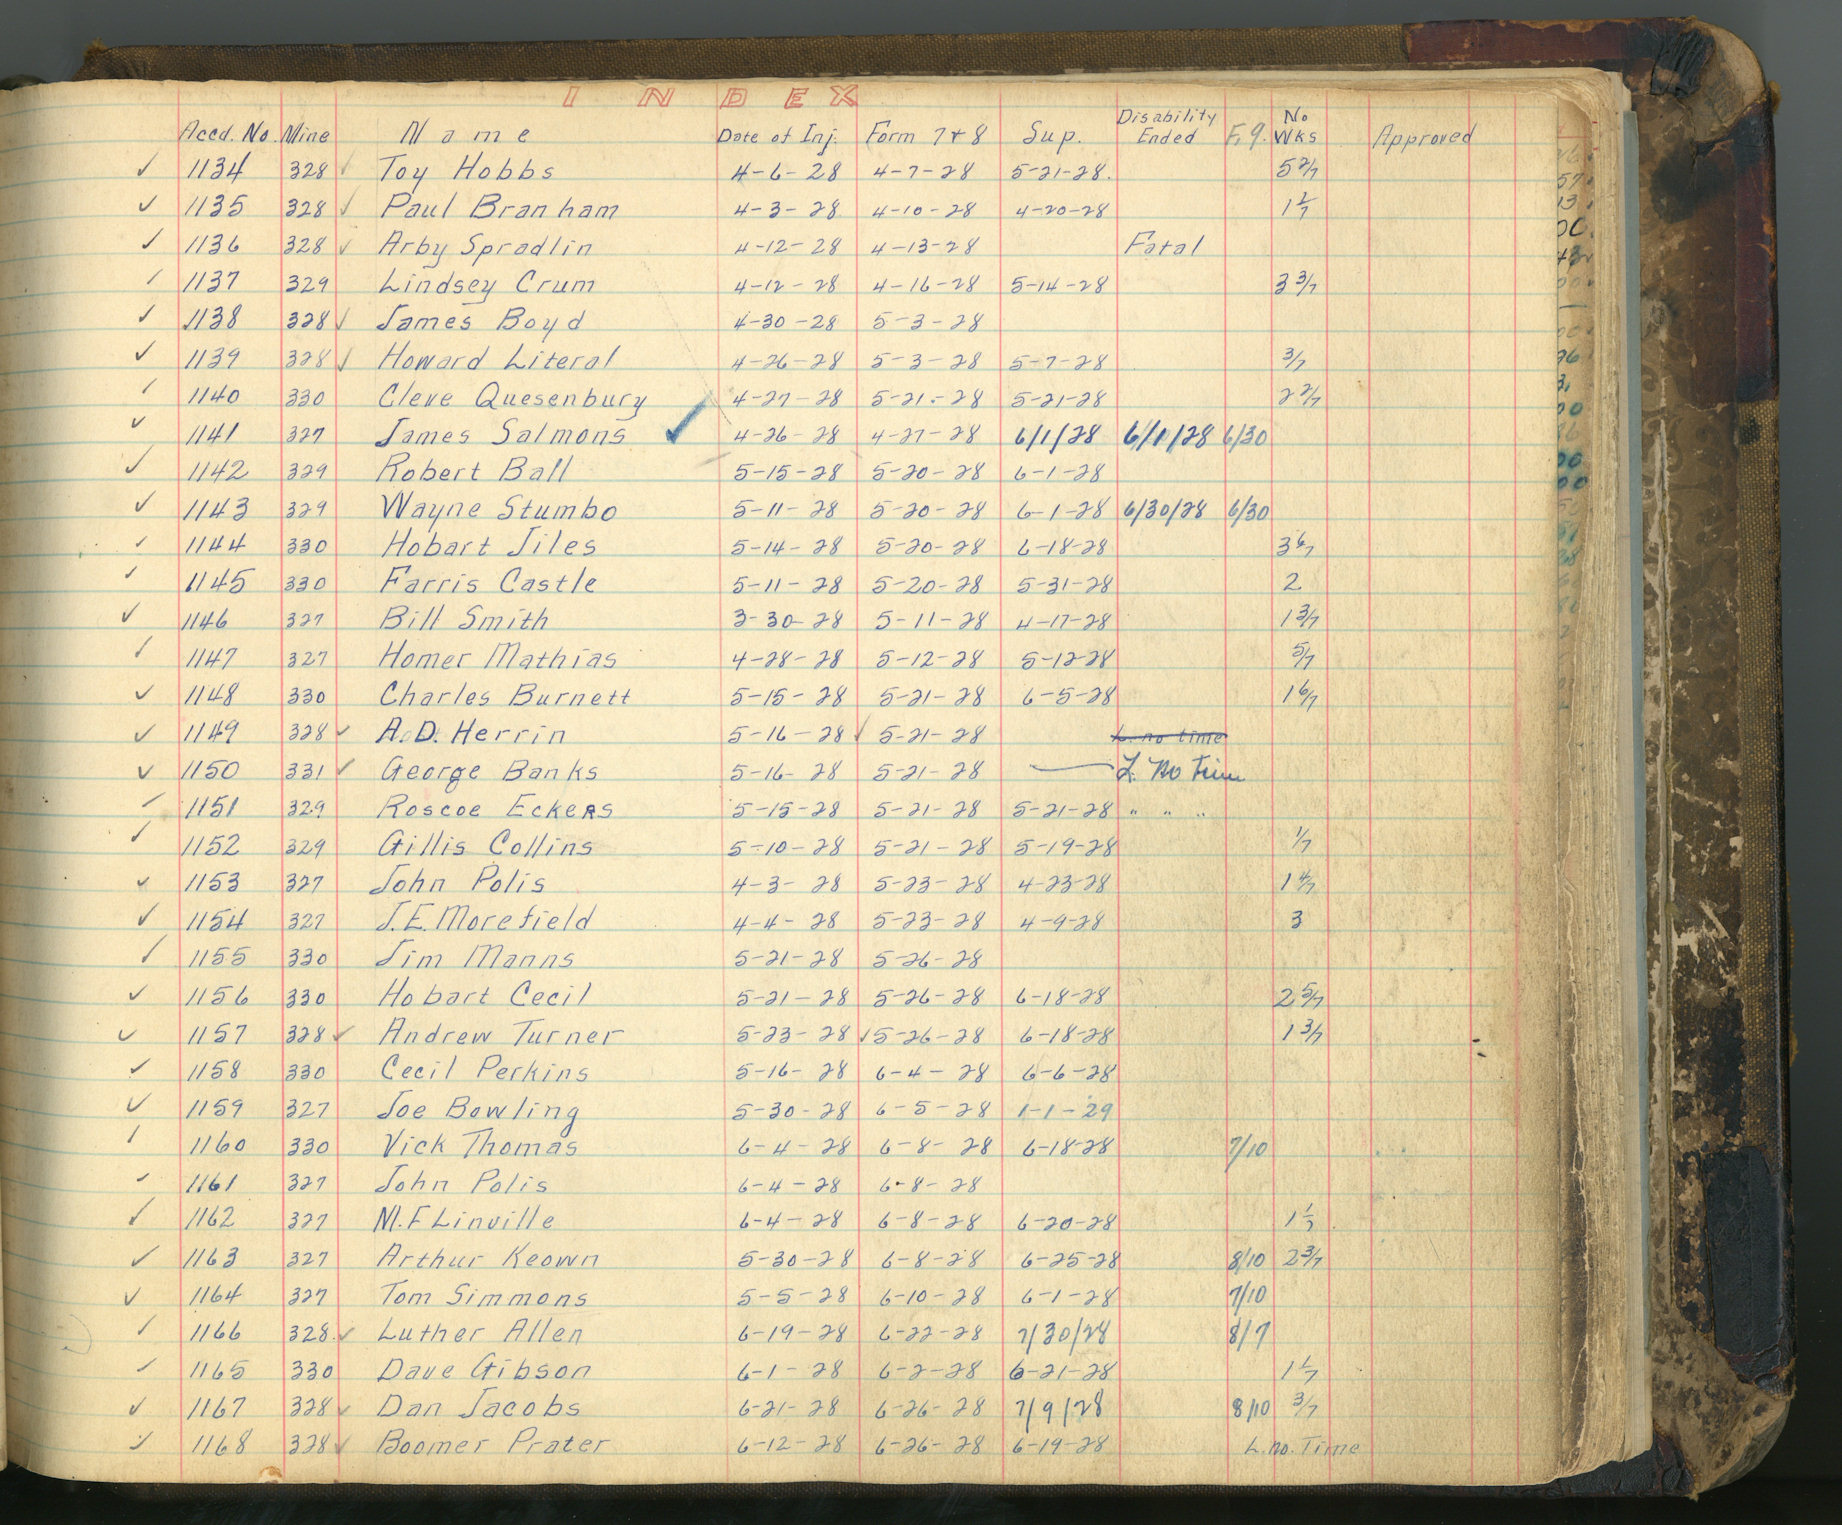 INDEX
Accd. No. Mine Name Date of Inj. Form 7+8 Sup. Disability Ended F. 9. No Wks Approved
✓ 1134 328 ✓ Toy Hobbs 4-6-28 4-7-28 5-21-28. 5 2/7
✓ 1135 328 ✓ Paul Branham 4-3-28 4-10-28 4-20-28 1 1/7
✓ 1136 328 ✓ Arby Spradlin 4-12-28 4-13-28 Fatal
✓ 1137 329 Lindsey Crum 4-12-28 4-16-28 5-14-28 3 3/7
✓ 1138 328 ✓ James Boyd 4-30-28 5-3-28
✓ 1139 328 ✓ Howard Literal 4-26-28 5-3-28 5-7-28 3/7
✓ 1140 330 Cleve Quesenbury 4-27-28 5-21-28 5-21-28 2 2/7
✓ 1141 327 James Salmons ✓ 4-26-28 4-27-28 6/1/28 6/1/28 6/30
✓ 1142 329 Robert Ball 5-15-28 5-20-28 6-1-28
✓ 1143 329 Wayne Stumbo 5-11-28 5-20-28 6-1-28 6/30/28 6/30
✓ 1144 330 Hobart Jiles 5-14-28 5-20-28 6-18-28 3 6/7
✓ 1145 330 Farris Castle 5-11-28 5-20-28 5-31-28 2
✓ 1146 327 Bill Smith 3-30-28 5-11-28 4-17-28 1 3/7
✓ 1147 327 Homer Mathias 4-28-28 5-12-28 5-12-28 5/7
✓ 1148 330 Charles Burnett 5-15-28 5-21-28 6-5-28 1 6/7
✓ 1149 328 ✓ A.D. Herrin 5-16-28 ✓ 5-21-28 L. no time
✓ 1150 331 ✓ George Banks 5-16-28 5-21-28 — L. No Time
✓ 1151 329 Roscoe Eckers 5-15-28 5-21-28 5-21-28 " " "
✓ 1152 329 Gillis Collins 5-10-28 5-21-28 5-19-28 1/7
✓ 1153 327 John Polis 4-3-28 5-23-28 4-23-28 1 4/7
✓ 1154 327 J.E. Morefield 4-4-28 5-23-28 4-9-28 3
✓ 1155 330 Jim Manns 5-21-28 5-26-28
✓ 1156 330 Hobart Cecil 5-21-28 5-26-28 6-18-28 2 5/7
✓ 1157 328 ✓ Andrew Turner 5-23-28 ✓ 5-26-28 6-18-28 1 3/7
✓ 1158 330 Cecil Perkins 5-16-28 6-4-28 6-6-28
✓ 1159 327 Joe Bowling 5-30-28 6-5-28 1-1-29
✓ 1160 330 Vick Thomas 6-4-28 6-8-28 6-18-28 7/10
✓ 1161 327 John Polis 6-4-28 6-8-28
✓ 1162 327 M.F Linville 6-4-28 6-8-28 6-20-28 1 1/7
✓ 1163 327 Arthur Keown 5-30-28 6-8-28 6-25-28 8/10 2 3/7
✓ 1164 327 Tom Simmons 5-5-28 6-10-28 6-1-28 7/10
✓ 1166 328 ✓ Luther Allen 6-19-28 6-22-28 7/30/28 8/7
✓ 1165 330 Dave Gibson 6-1-28 6-2-28 6-21-28 1 1/7
✓ 1167 328 ✓ Dan Jacobs 6-21-28 6-26-28 7/9/28 8/10 3/7
✓ 1168 328 ✓ Boomer Prater 6-12-28 6-26-28 6-19-28 L. no. Time